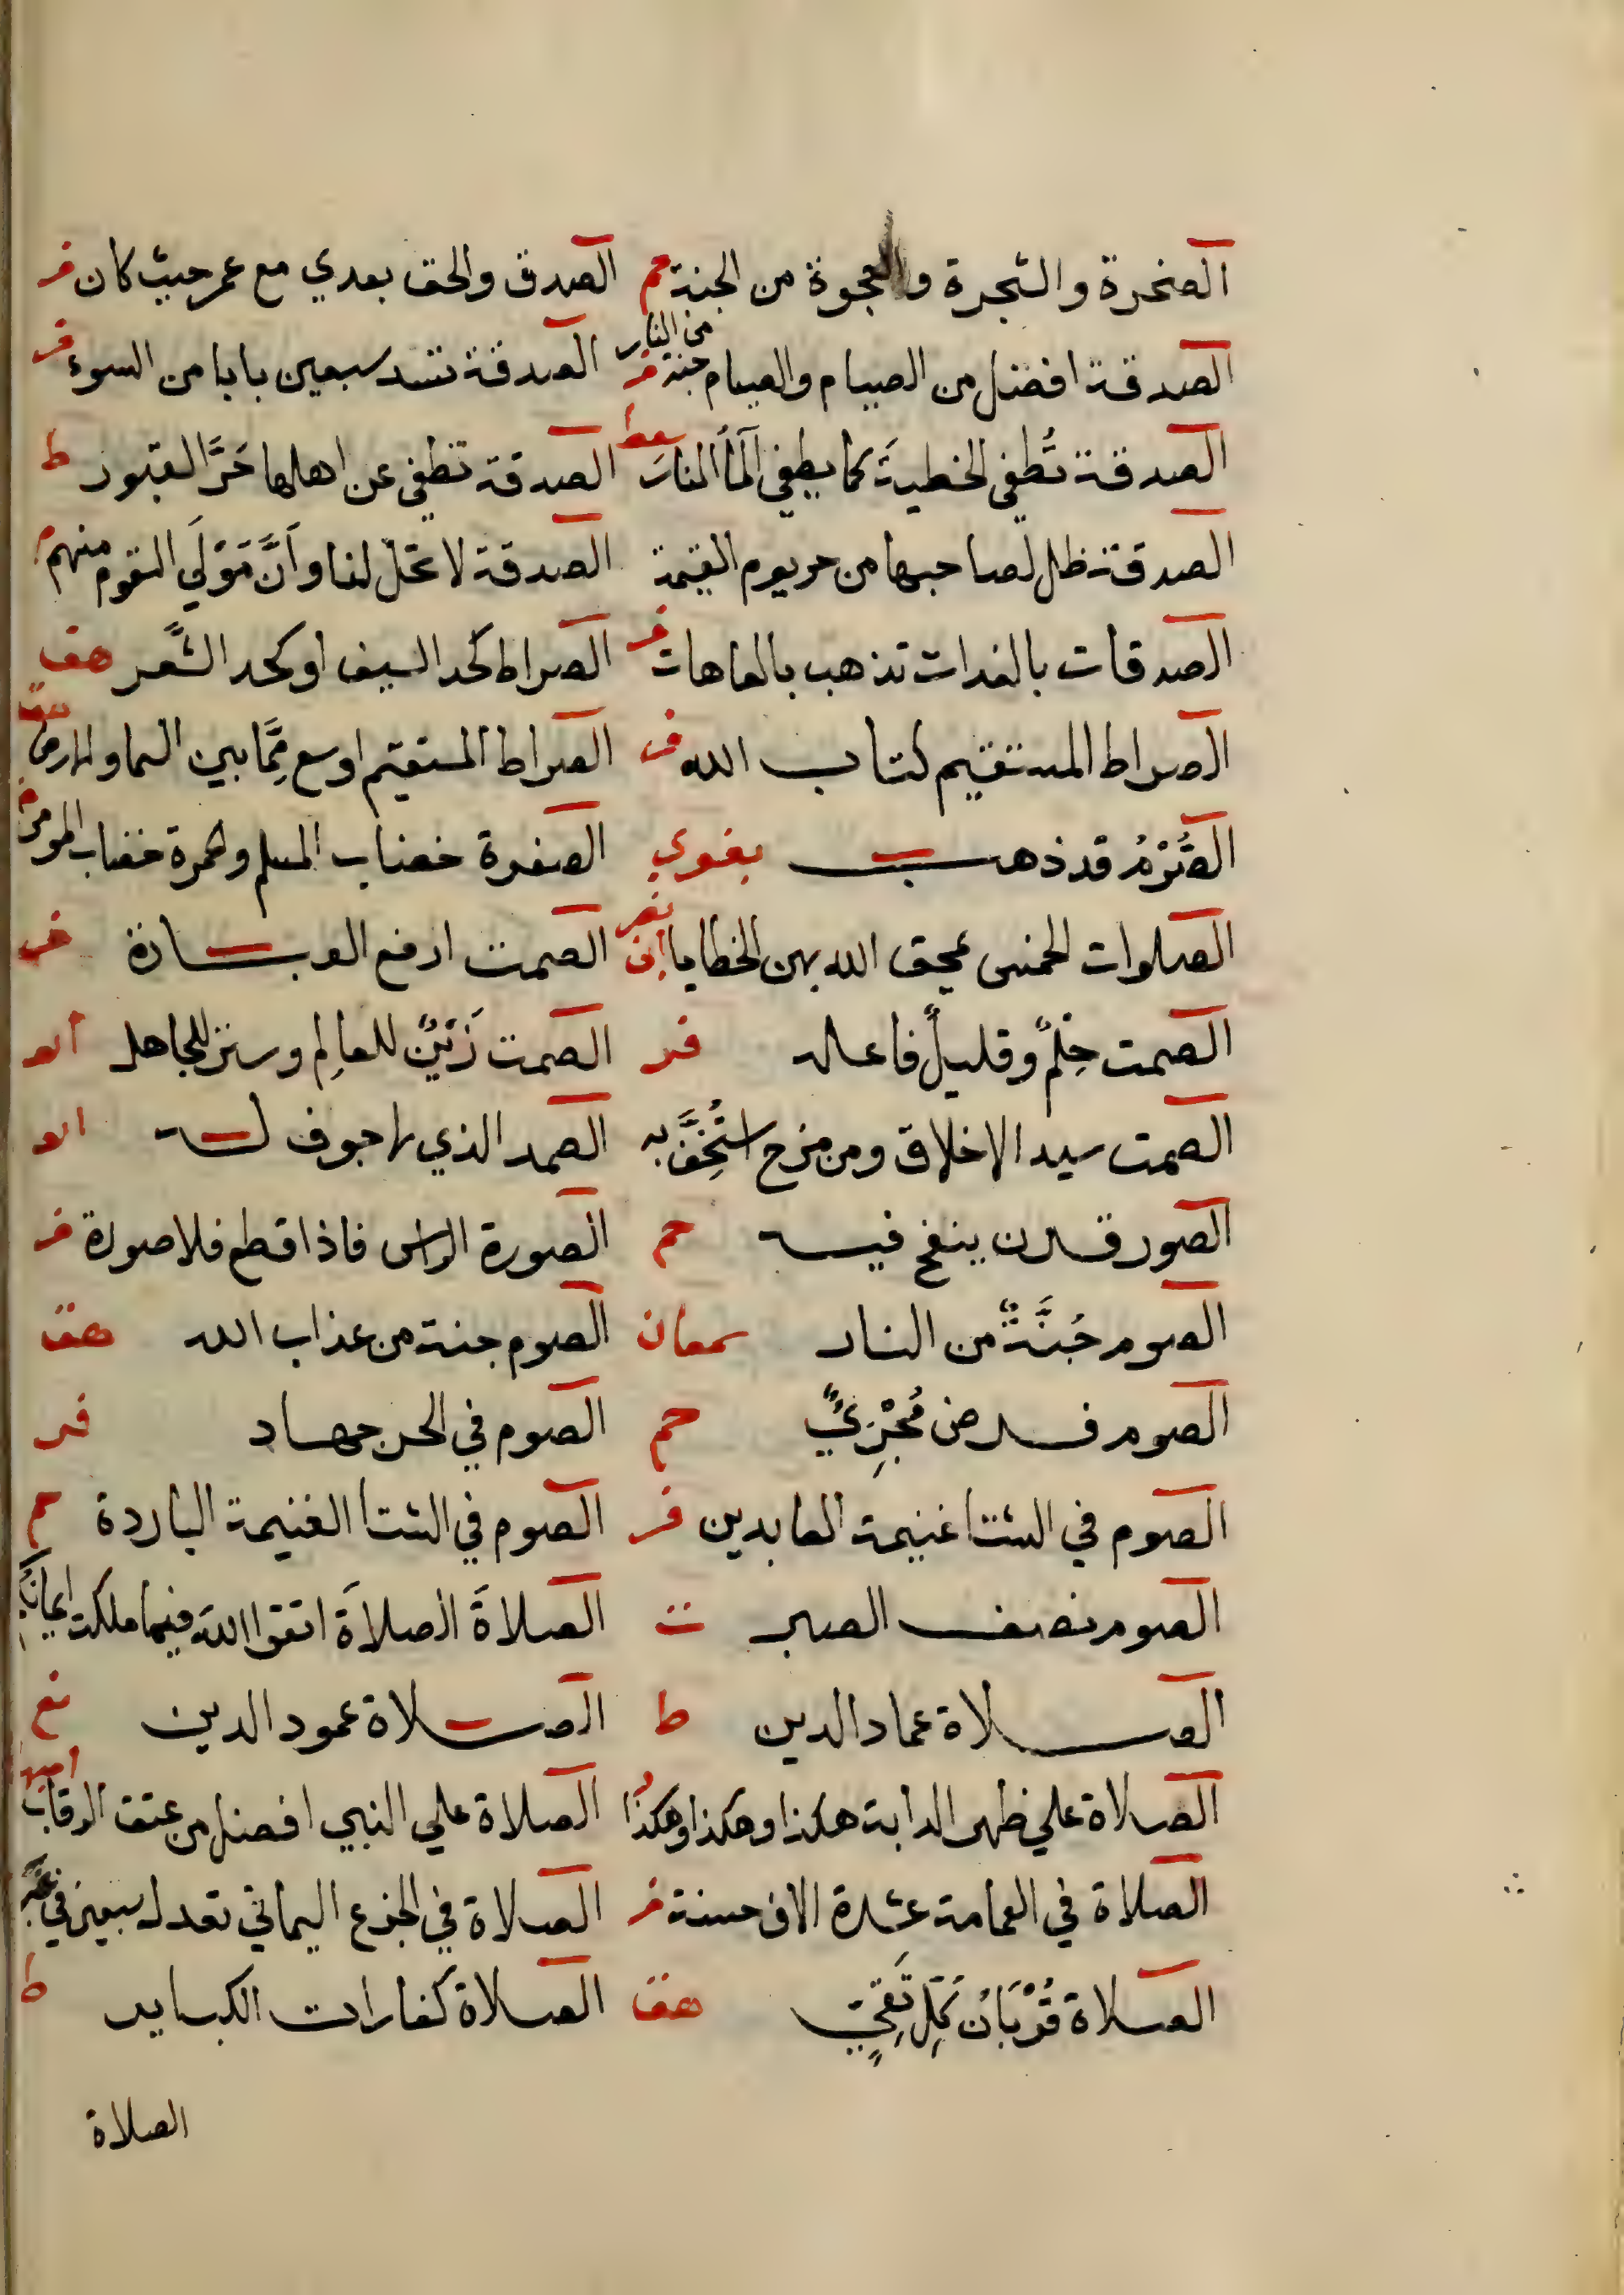 الصخرة والشجرة والعجوة من الجنة حم الصدق والحق بعدي مع عمر حيث كان فر
الصدقة افضل من الصيام والصيام جنة من النار فر الصدقة تسد سبعين بابا من السوء فر
الصدقة تُطفى الخطيةَ كما يطفى المأ النارَ الصدقة تطفى عن اهلها حَرَّ القبور ط
الصدقة ظل لصاحبها من حر يوم القيمة الصدقة لا تحل لنا وَاَنَّ مَوْلَي القوم منهم
الصدقات بالغدات تذهب بالعاهات فر الصراط كحد السيف او كحد الشَّعر هق
الصراط المستقيم كتاب الله فر الصراط المستقيم اوسع مِمَّا بين السما والارض هق
الصُّرْمُ قد ذهب بغوي الصفرة خضاب المسلم والحمرة خضاب المومن
الصلوات الخمس يمحق الله بهن الخطايا الصمت ارفع العبادة فر
الصمت حِلمٌ وقليلٌ فاعله فر الصمت زَيْنٌ للعالِم وستر للجاهل ابو
الصمت سيد الاخلاق ومن مزح استُخِفَّ به الصمد الذي لا جوف له ابو
الصور قرن ينفخ فيه حم الصورة الراس فاذا قطع فلا صورة فر
الصوم جُنَّةٌ من النار سمعان الصوم جنة من عذاب الله هق
الصوم فرض مُجْزِيٌ حم الصوم في الحر جهاد فر
الصوم في الشتا غنيمة العابدين فر الصوم في الشتا الغنيمة الباردة حم
الصوم نصف الصبر ت الصلاةَ الصلاةَ اتقوا اللهَ فيما ملكت ايمانكم
الصلاة عماد الدين ط الصلاة عمود الدين نع
الصلاة علي ظهر الدابة هكذا وهكذا وهكذا الصلاة علي النبي افضل من عتق الرقاب
الصلاة في العمامة عشرة الاف حسنة فر الصلاة في الجزع اليماني تعدل سبعين في غيره
الصلاة قُرْبَانُ كُلِّ تَقِيٍّ هق الصلاة كفارات الكباير ط
الصلاة